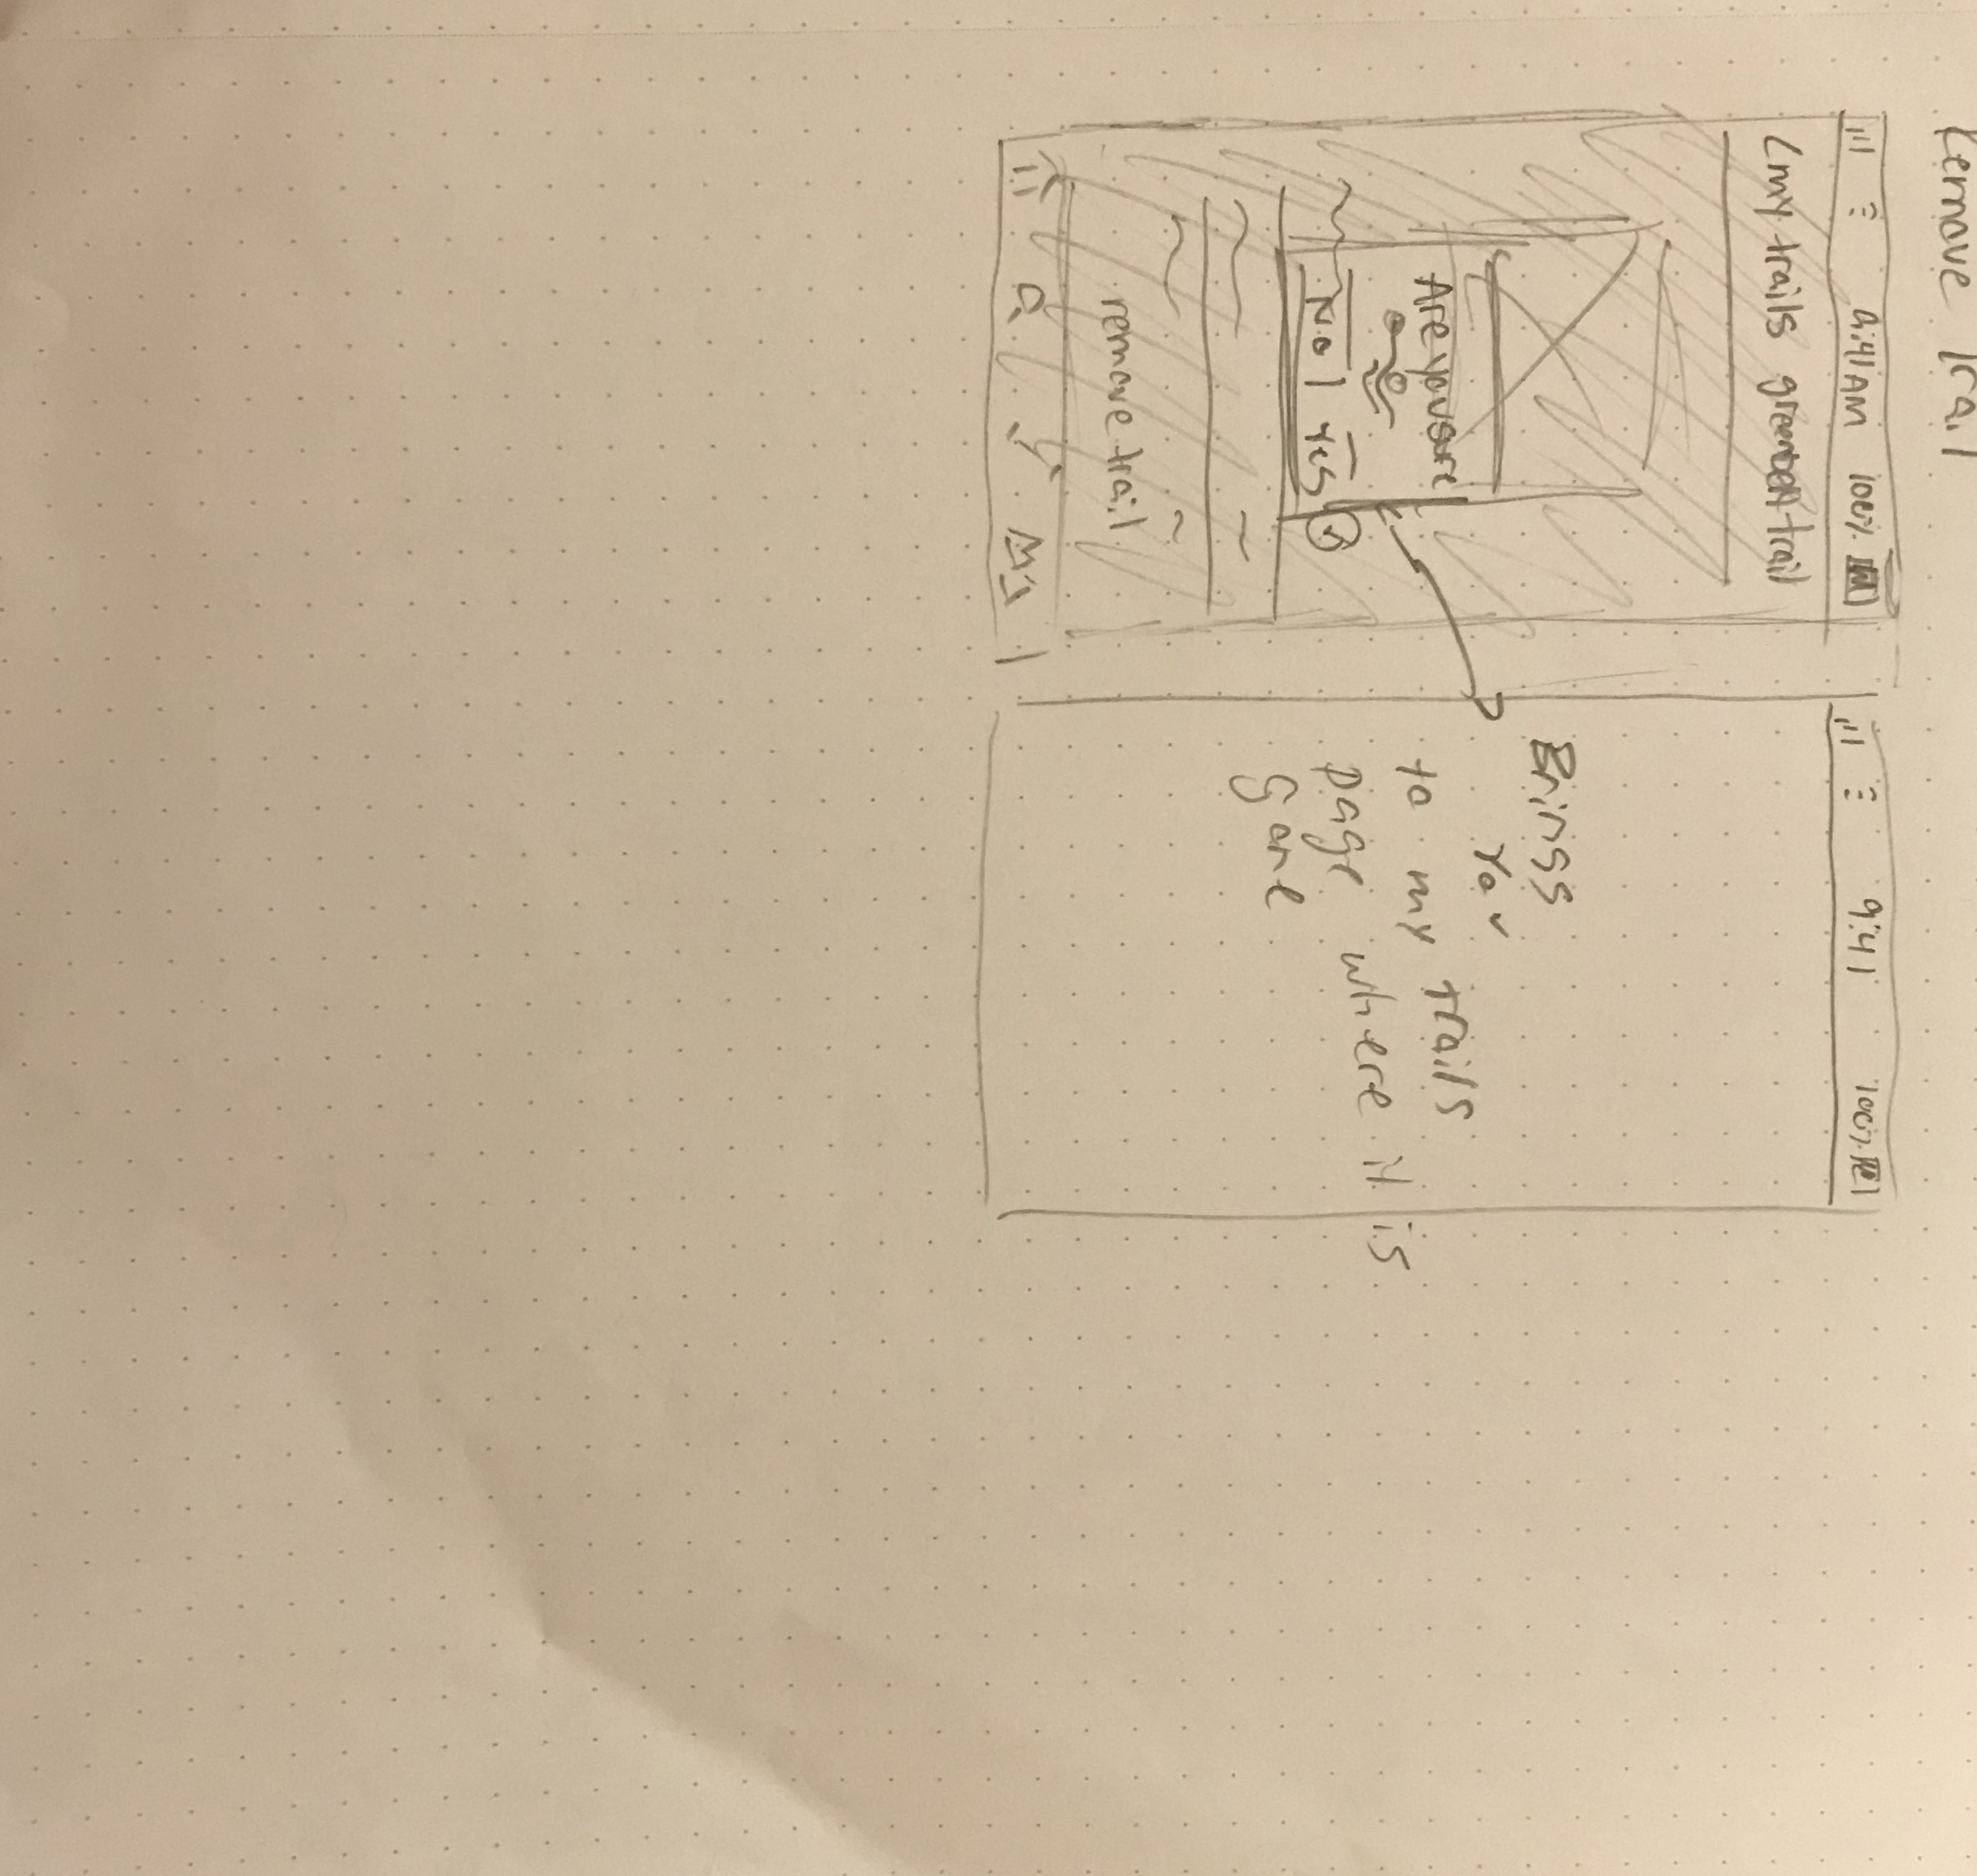 Remove Trail
9:41AM 100%
<my trails greenbelt trail
Are you sure
No | Yes
remove trail
9:41 100%
Brings
You
to my trails
page where it is
gone